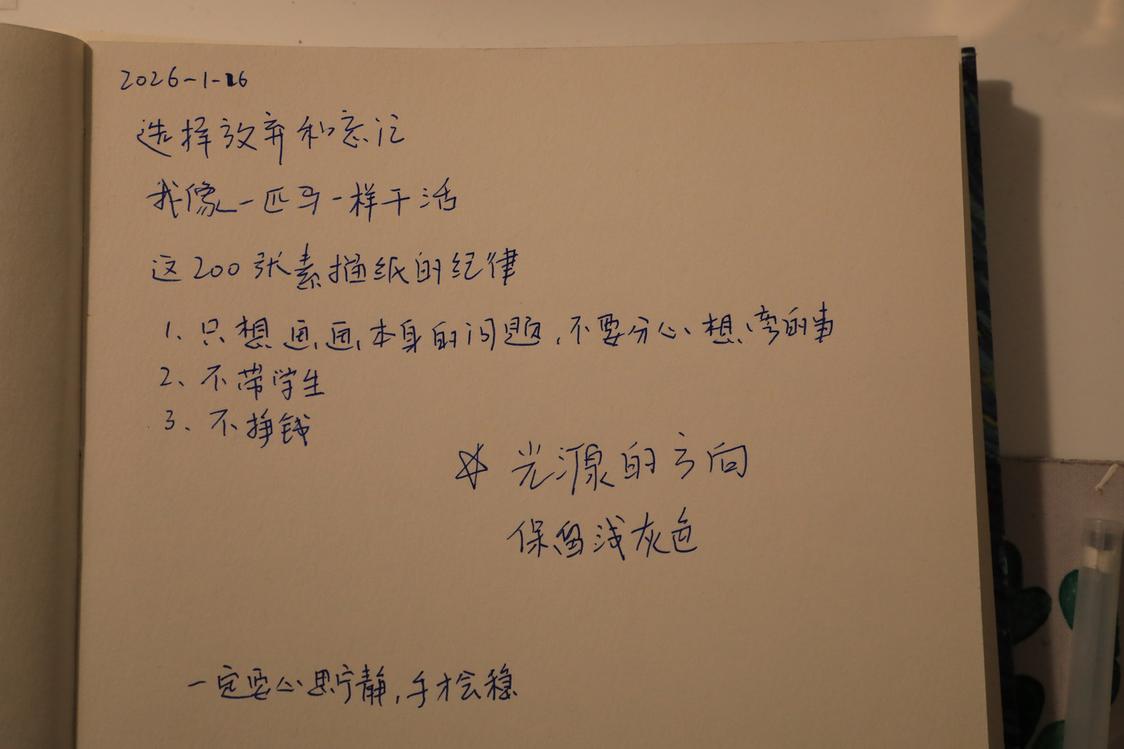 2026-1-26
选择放弃和忘记
我像一匹马一样干活
这200张素描纸的纪律
1、只想画画本身的问题,不要分心想别的事
2、不带学生
3、不挣钱
☆ 光源的方向
保留浅灰色
一定要心思宁静,手才会稳